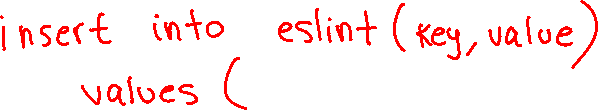 insert into eslint (key, value)
values (